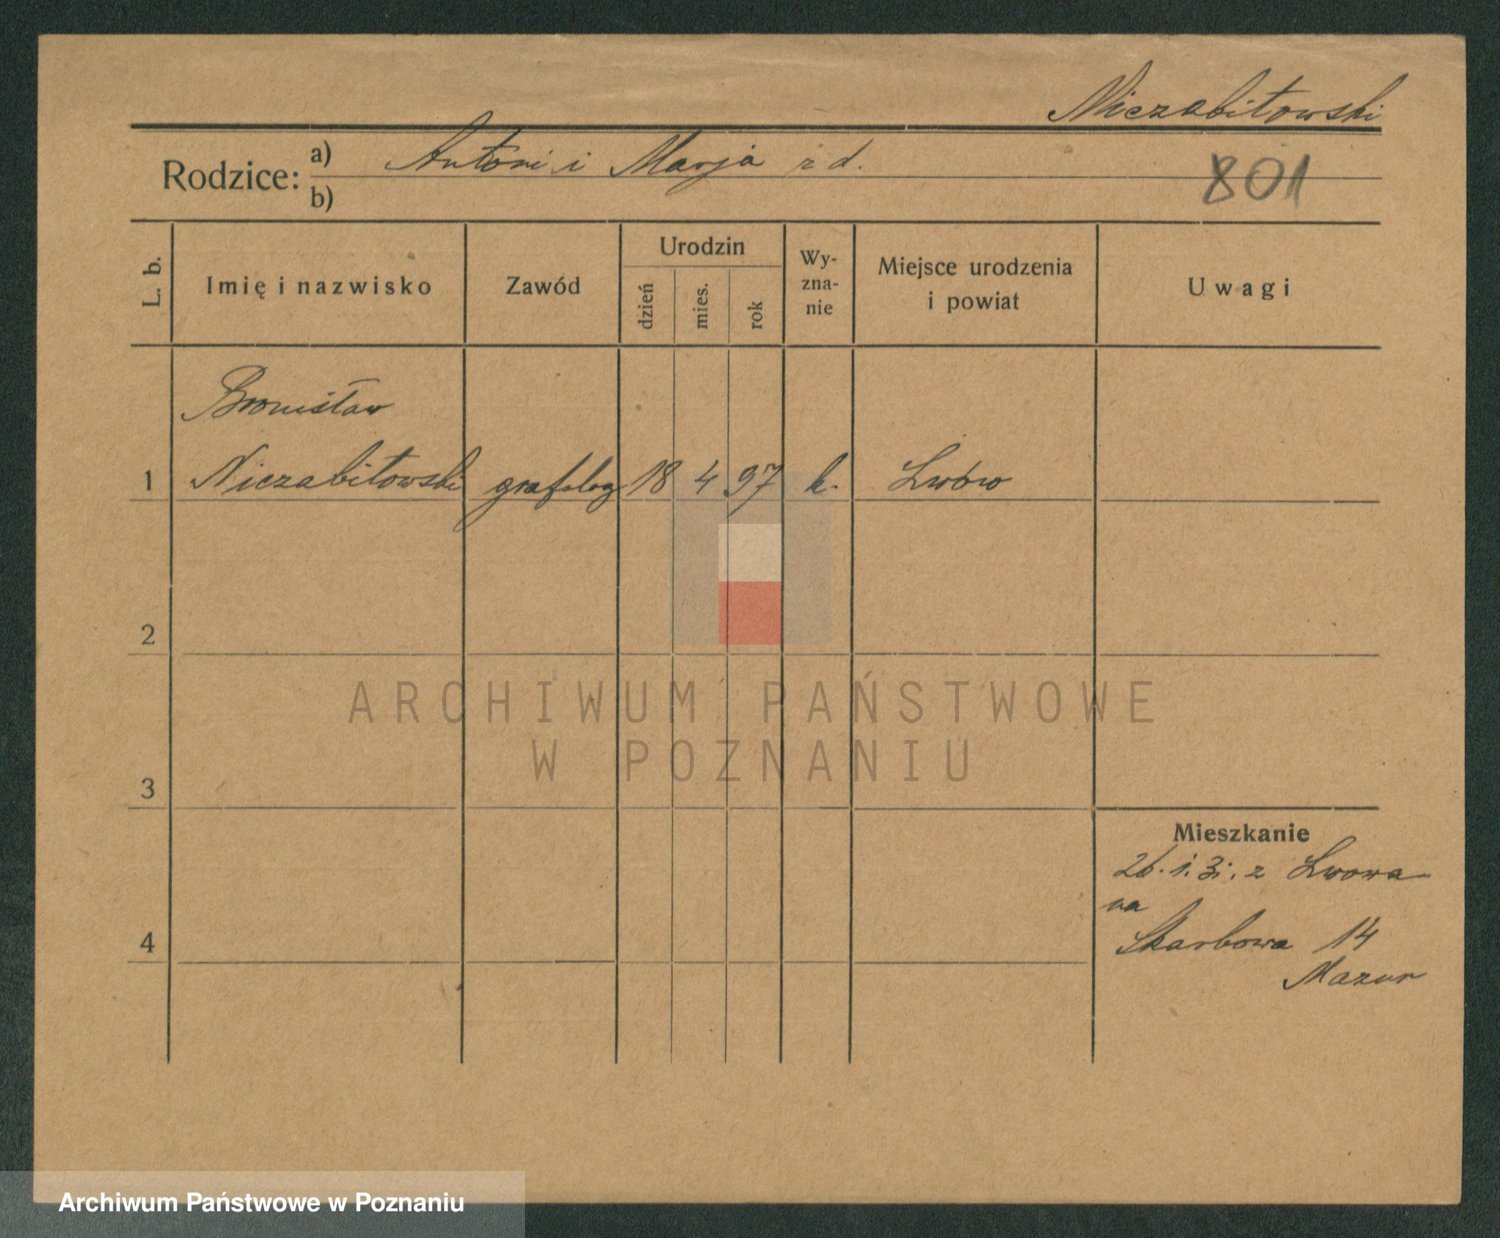 Niezabitowski
Rodzice: a) Antoni i Marja z d.
b)
801
L. b.
Imię i nazwisko
Zawód
Urodzin
dzień
mies.
rok
Wy-
zna-
nie
Miejsce urodzenia
i powiat
Uwagi
Bronisław
1 Niezabitowski grafolog 18 4 97 k. Lwów
2
3
4
ARCHIWUM PAŃSTWOWE
W POZNANIU
Mieszkanie
26. 1. 31. z Lwowa
na
Skarbowa 14
Mazur
Archiwum Państwowe w Poznaniu